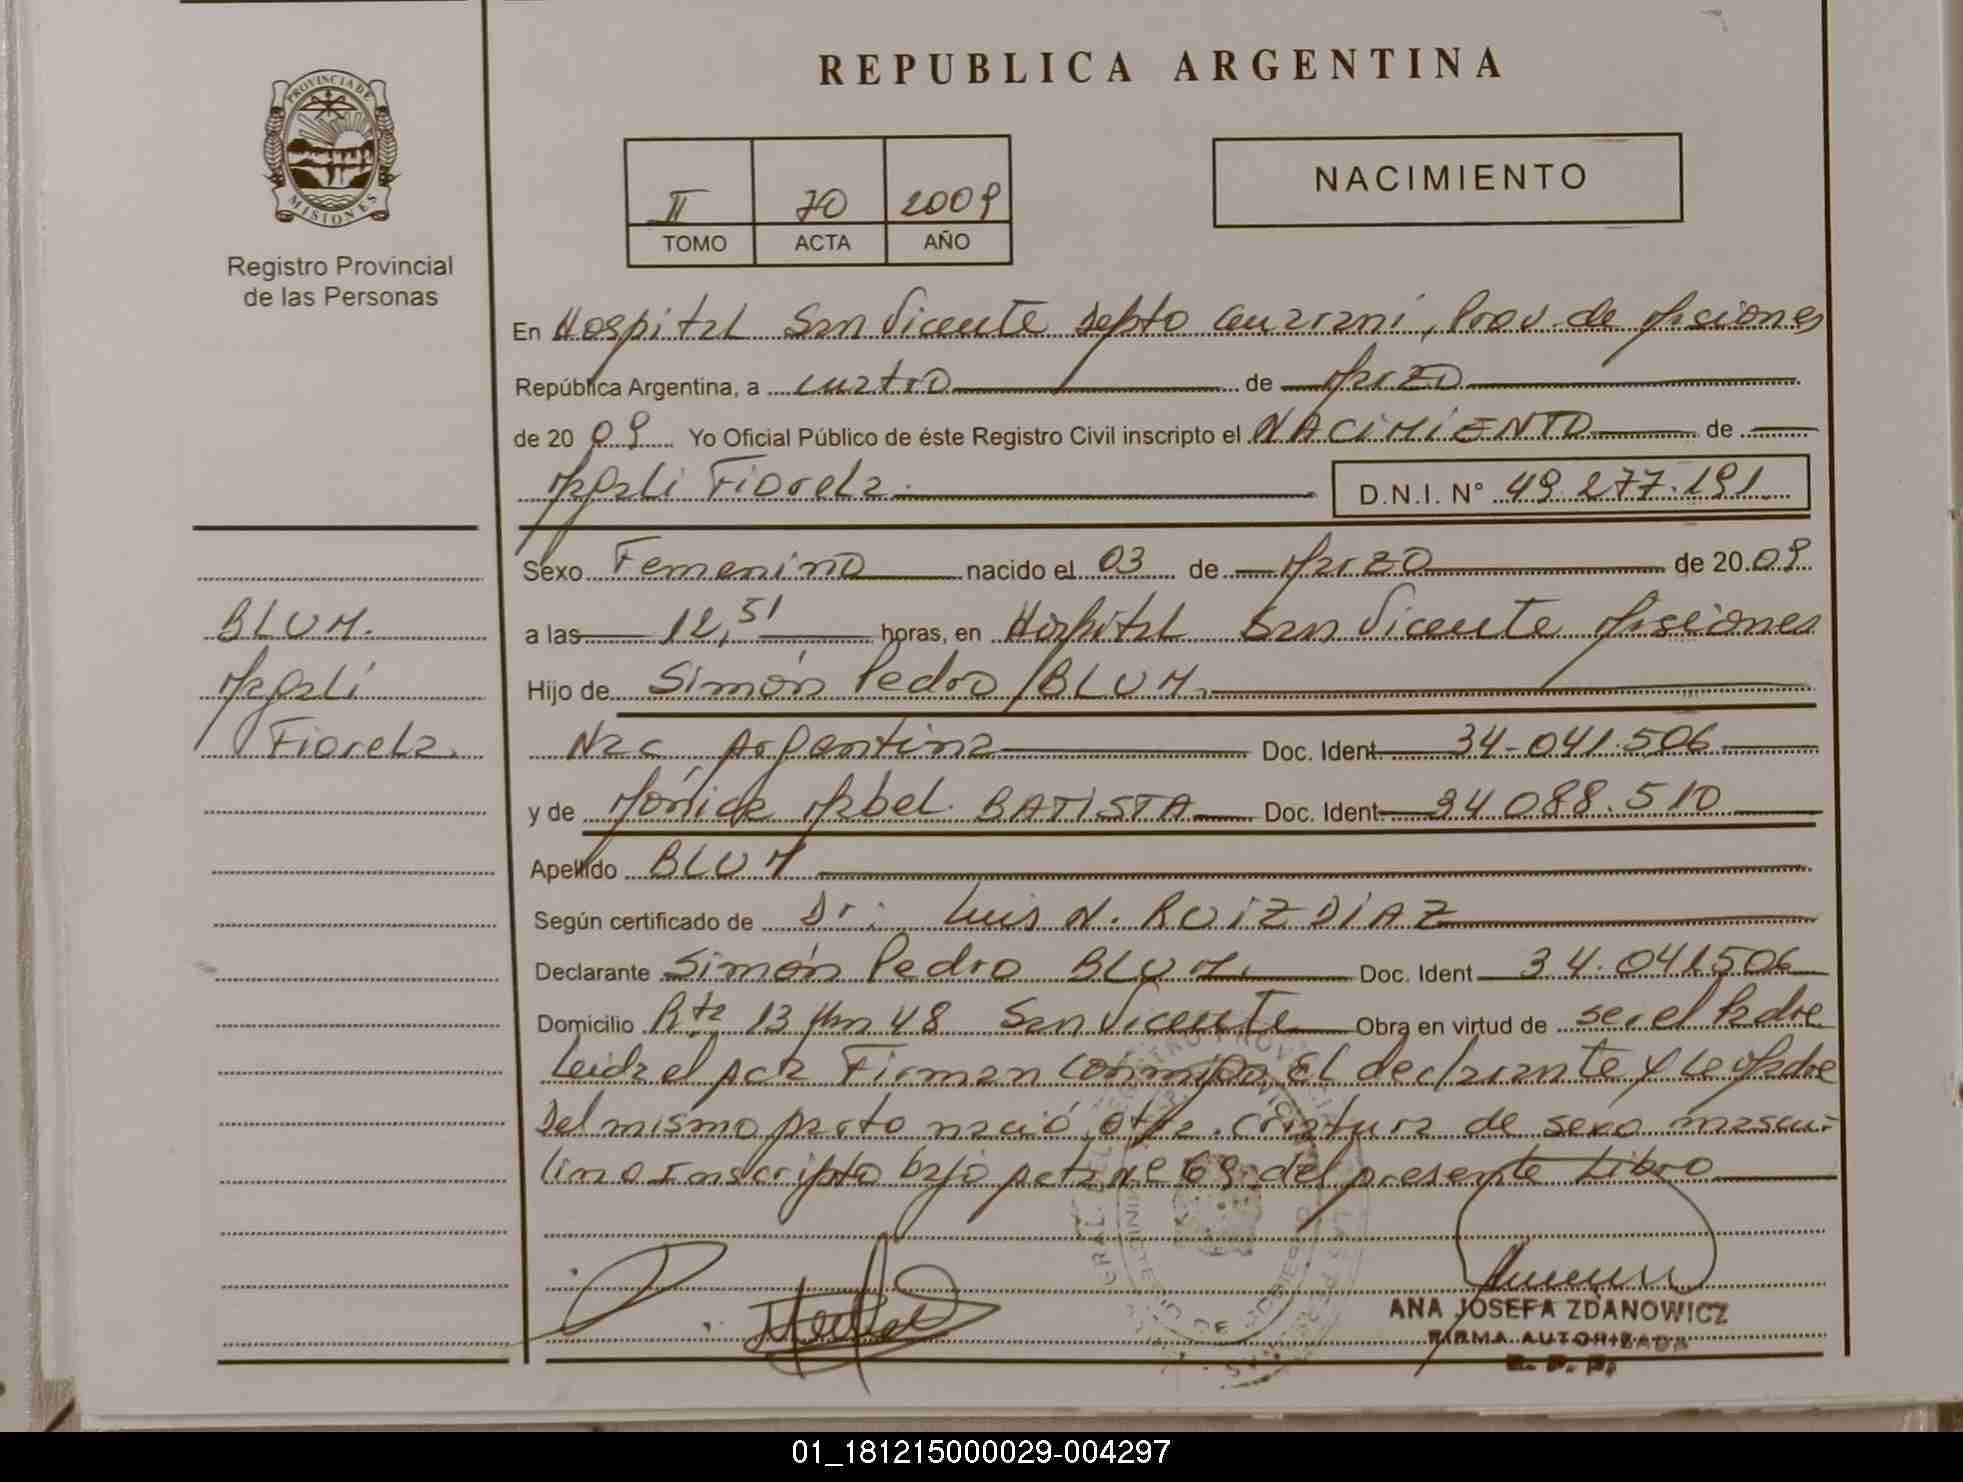 REPUBLICA ARGENTINA
PROVINCIA DE
MISIONES
Registro Provincial
de las Personas
II 70 2009
TOMO ACTA AÑO
NACIMIENTO
En Hospital San Vicente Depto Guaraní, Prov. de Misiones
República Argentina, a cuatro de Marzo
de 20 09 Yo Oficial Público de éste Registro Civil inscripto el NACIMIENTO de
Magali Fiorela. D.N.I. N° 49.277.191
Sexo Femenino nacido el 03 de Marzo de 20 09
a las 12,51 horas, en Hospital San Vicente Misiones
Hijo de Simón Pedro BLUM.
Nac Argentina Doc. Ident. 34-041.506
y de Mónica Mabel. BATISTA Doc. Ident 34.088.510
Apellido BLUM
Según certificado de Dr: Luis N. RUIZ DIAZ
Declarante Simón Pedro BLUM. Doc. Ident 34.041506
Domicilio Rta 13 Km 48 San Vicente Obra en virtud de ser el Padre
Leida el Acta Firman Conmigo El declarante y la Madre
Del mismo parto nació otra criatura de sexo mascu-
lino Inscripto bajo Acta nº 69 del presente Libro
BLUM.
Magali
Fiorela.
ANA JOSEFA ZDANOWICZ
FIRMA AUTORIZADA
R. P. P.
01_181215000029-004297